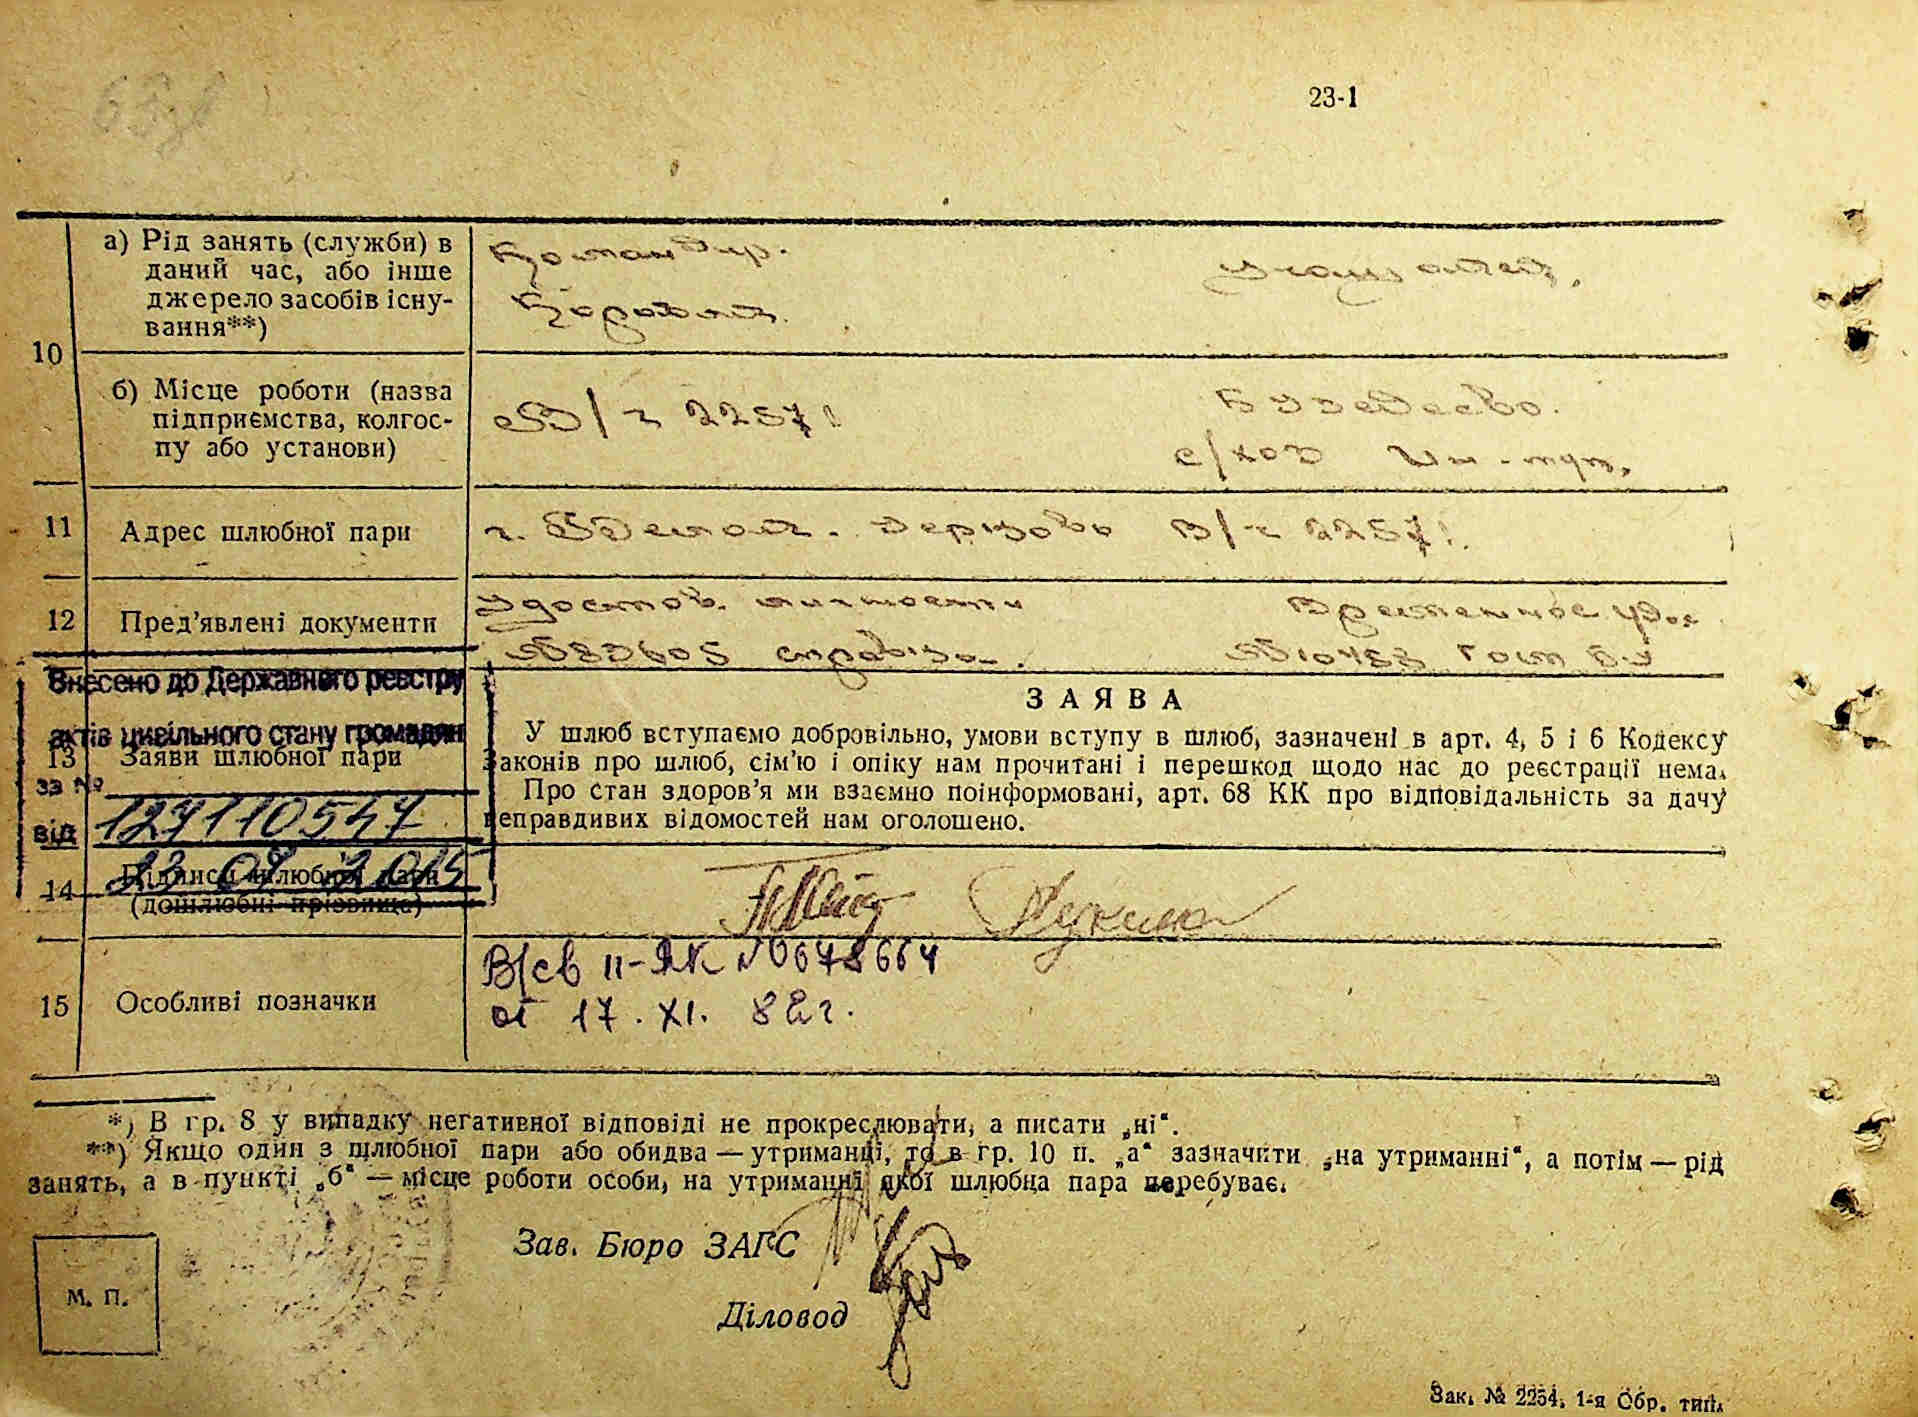 23-1
10
а) Рід занять (служби) в
даний час, або інше
джерело засобів існу-
вання**)
Командир.
Корабля
учащаяся.
б) Місце роботи (назва
підприємства, колгос-
пу або установи)
В/ч 2257!
с/хоз Ин-тут.
11
Адрес шлюбної пари
г. В/ч 2257!
12
Пред’явлені документи
Удостов. личности
справка.
Временное удос
Внесено до Державного реєстру
актів цивільного стану громадян
за №
від
13
Заяви шлюбної пари
ЗАЯВА
У шлюб вступаємо добровільно, умови вступу в шлюб, зазначені в арт. 4, 5 і 6 Кодексу
Законів про шлюб, сім’ю і опіку нам прочитані і перешкод щодо нас до реєстрації нема.
Про стан здоров’я ми взаємно поінформовані, арт. 68 КК про відповідальність за дачу
неправдивих відомостей нам оголошено.
14
Підписи шлюбної пари
(дошлюбні прізвища)
15
Особливі позначки
В/св II-ЯК №678664
от 17. XI. 82 г.
*) В гр. 8 у випадку негативної відповіді не прокреслювати, а писати „ні“.
**) Якщо один з шлюбної пари або обидва — утриманці, то в гр. 10 п. „а“ зазначити „на утриманні“, а потім — рід
занять, а в пункті „б“ — місце роботи особи, на утриманні якої шлюбна пара перебуває.
Зав. Бюро ЗАГС
М. П.
Діловод
Зак. № 2254. 1-я Обр. тип.